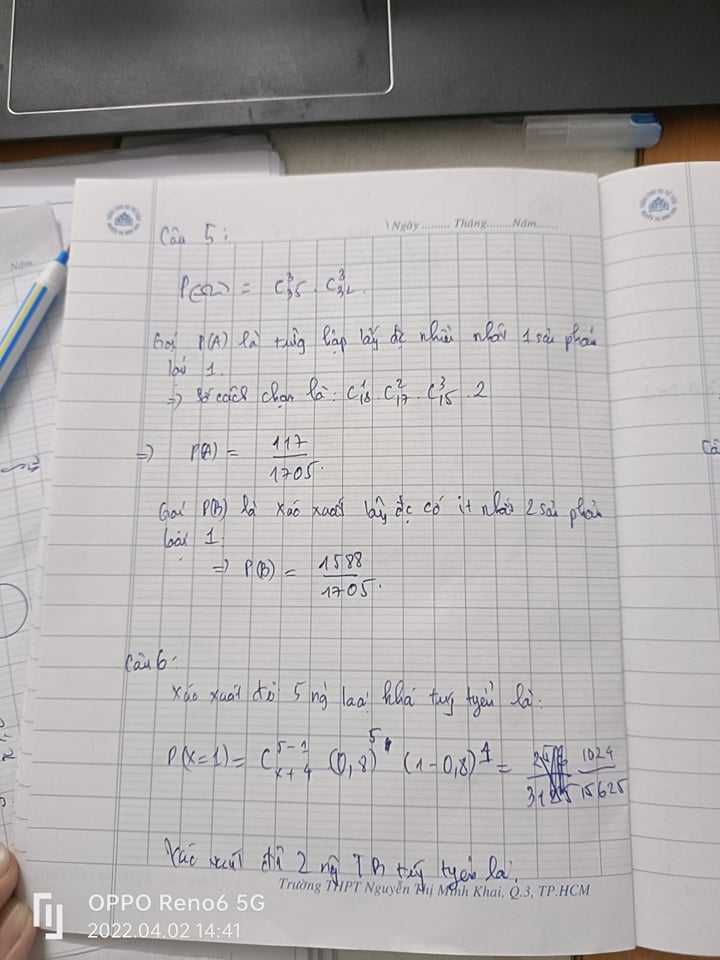 Ngày ......... Tháng.......Năm......
Câu 5:
P(Ω) = C³₃₅ . C³₃₂.
Gọi P(A) là trường hợp lấy đc nhiều nhất 1 sản phẩm
loại 1.
=> Số cách chọn là: C¹₁₈ . C²₁₇ . C³₁₅ . 2
=> P(A) = 117/1705.
Gọi P(B) là xác xuất lấy đc có ít nhất 2 sản phẩm
loại 1.
=> P(B) = 1588/1705.
Câu 6:
Xác xuất để 5 ng loại khá trúng tuyển là:
P(x=1) = C⁵⁻¹ₓ₊₄ (0,8)⁵ . (1-0,8)¹ = 1024/15625
Xác xuất để 2 ng TB trúng tuyển là.
Trường THPT Nguyễn Thị Minh Khai, Q.3, TP.HCM
OPPO Reno6 5G
2022.04.02 14:41
Năm